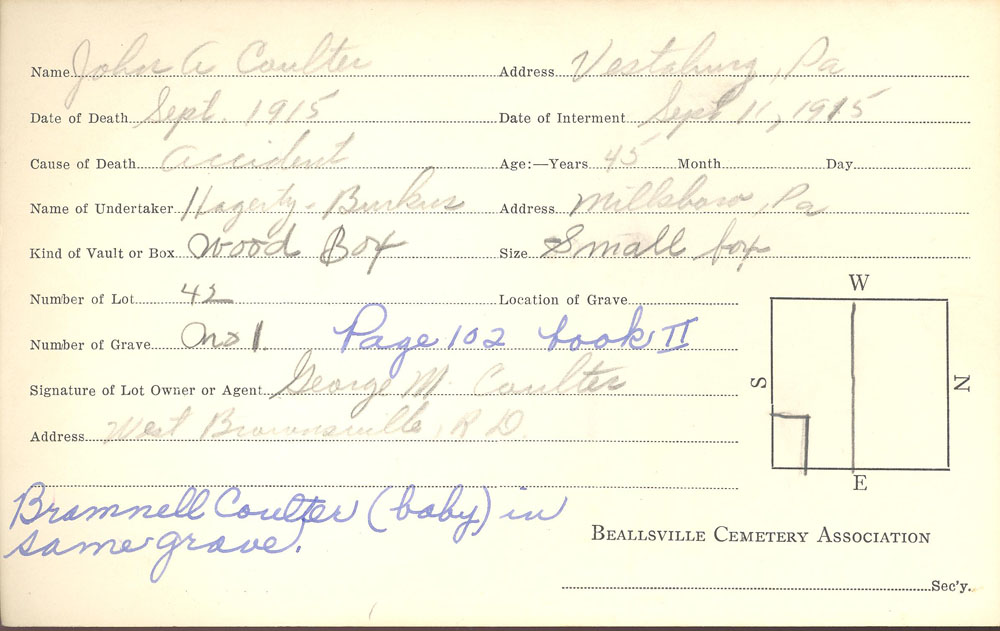 Name John A Coulter Address Vestaburg, Pa
Date of Death Sept. 1915 Date of Interment Sept 11, 1915
Cause of Death accident Age:—Years 45 Month Day
Name of Undertaker Hagerty - Address Millsboro, Pa
Kind of Vault or Box Wood Box Size Small box
Number of Lot 42 Location of Grave
Number of Grave No 1 Page 102 book II
Signature of Lot Owner or Agent George M. Coulter
Address West Brownsville, R D.
W
S
N
E
Bramnell Coulter (baby) in
same grave.
Beallsville Cemetery Association
Sec'y.